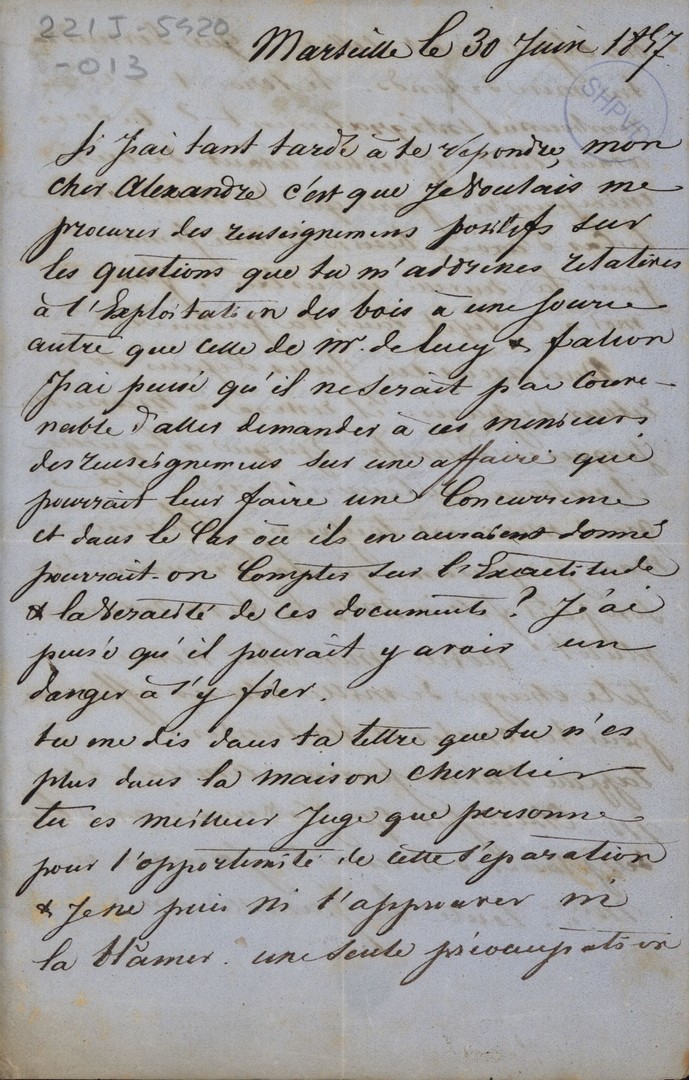 221J-5920
-013
SHPVD
Marseille le 30 Juin 1857
Si J'ai tant tardé à te répondre, mon
cher Alexandre c'est que Je voulais me
procurer des renseignemens positifs sur
les questions que tu m'adresses relatives
à l'Exploitation des bois à une source
autre que celle de Mr. de Lucy & falion
J'ai pensé qu'il ne serait pas conve-
nable d'aller demander à ces messieurs
des renseignemens sur une affaire qui
pourrait leur faire une Concurrence
et dans le Cas où ils en auraient donné
pourrait-on Compter sur l'Exactitude
& la veracité de ces documents ? J'ai
pensé qu'il pourait y avoir un
danger à s'y fier.
tu me dis dans ta lettre que tu n'es
plus dans la maison chevalier
tu es meilleur Juge que personne
pour l'opportunité de cette séparation
& Je ne puis ni l'approuver ni
la blâmer. une seule préocupation